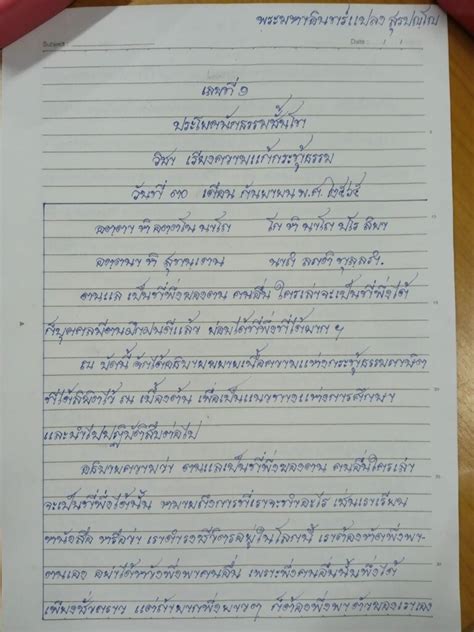 พระมหาอินทร์แปลง สุรปญฺโญ
Subject
Date / /
เลขที่ ๑
ประโยคนักธรรมชั้นโท
วิชา เรียงความแก้กระทู้ธรรม
วันที่ ๓๐ เดือน กันยายน พ.ศ. ๒๕๖๕
อตฺตา หิ อตฺตโน นาโถ โก หิ นาโถ ปโร สิยา
อตฺตนา หิ สุทนฺเตน นาถํ ลภติ ทุลฺลภํ.
ตนแล เป็นที่พึ่งของตน คนอื่น ใครเล่าจะเป็นที่พึ่งได้
ก็บุคคลมีตนฝึกฝนดีแล้ว ย่อมได้ที่พึ่งที่ได้ยาก ฯ
ณ บัดนี้ จักได้อธิบายขยายเนื้อความแห่งกระทู้ธรรมภาษิต
ที่ได้ลิขิตไว้ ณ เบื้องต้น เพื่อเป็นแนวทางแห่งการศึกษา
และนำไปปฏิบัติสืบต่อไป
อธิบายความว่า ตนแลเป็นที่พึ่งของตน คนอื่นใครเล่า
จะเป็นที่พึ่งได้นั้น หมายถึงการที่เราจะทำอะไร เช่นเราเรียน
หนังสือ หรือว่า เราดำรงชีวิตอยู่ในโลกนี้ เราต้องหัดพึ่งพา
ตนเอง อย่าได้หวังพึ่งพาคนอื่น เพราะพึ่งคนอื่นนั้นพึ่งได้
เพียงชั่วคราว แต่ถ้า ก็ต้องพึ่งพาตัวของเราเอง